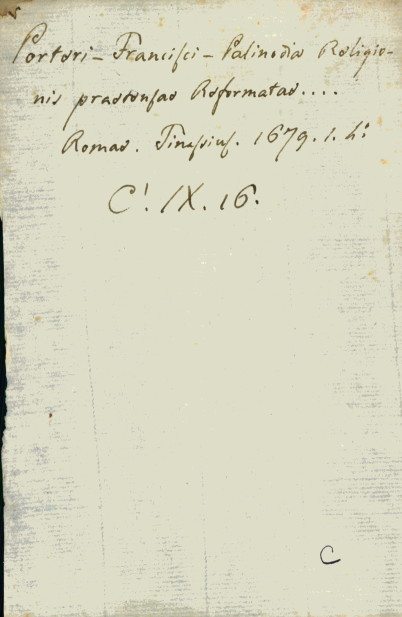 Portori - Francisci - Palinodia Religio-
nis praetensae Reformatae....
Romae. Tinassius. 1679. 1. h:
C! IX. 16.
C